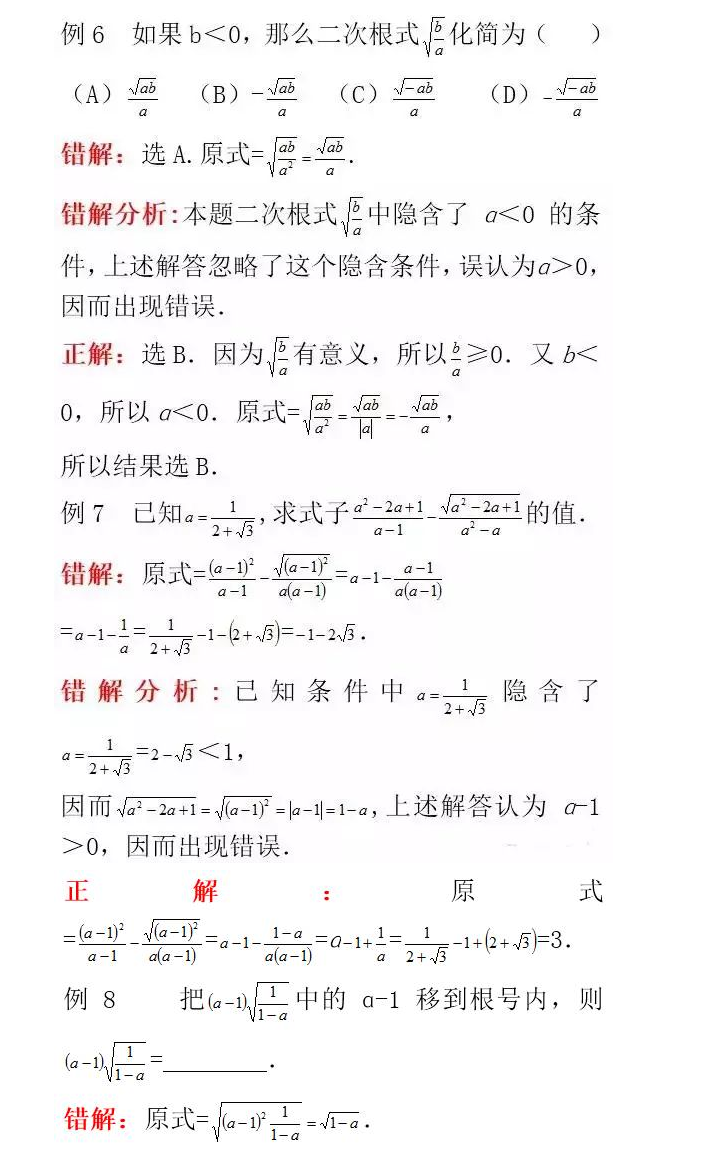 例6 如果b<0，那么二次根式√(b/a)化简为（ ）
（A）√(ab)/a （B）-√(ab)/a （C）√(-ab)/a （D）-√(-ab)/a
错解：选A.原式=√(ab/a²)=√(ab)/a.
错解分析:本题二次根式√(b/a)中隐含了 a<0 的条
件,上述解答忽略了这个隐含条件,误认为a>0,
因而出现错误.
正解：选B. 因为√(b/a)有意义，所以b/a≥0. 又b<
0，所以a<0. 原式=√(ab/a²)=√(ab)/|a|=-√(ab)/a，
所以结果选B.
例7 已知a=1/(2+√3),求式子(a²-2a+1)/(a-1)-√(a²-2a+1)/(a²-a)的值.
错解：原式=(a-1)²/(a-1)-√((a-1)²)/(a(a-1))=a-1-(a-1)/(a(a-1))
=a-1-1/a=1/(2+√3)-1-(2+√3)=-1-2√3.
错解分析:已知条件中a=1/(2+√3)隐含了
a=1/(2+√3)=2-√3<1，
因而√(a²-2a+1)=√((a-1)²)=|a-1|=1-a,上述解答认为 a-1
>0，因而出现错误.
正解：原式
=(a-1)²/(a-1)-√((a-1)²)/(a(a-1))=a-1-(1-a)/(a(a-1))=a-1+1/a=1/(2+√3)-1+(2+√3)=3.
例8 把(a-1)√(1/(1-a))中的 a-1 移到根号内，则
(a-1)√(1/(1-a))=________.
错解：原式=√((a-1)²1/(1-a))=√(1-a).